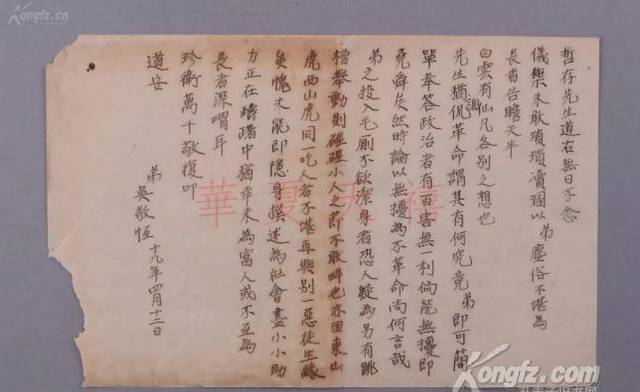 哲存先生道右無日不念
儀槼未敢瑣瑣瀆囿以弟塵俗不堪為
長者告瞻天半
白雲有仙凡各別之想也
先生猶侃調革命謂其有何究竟弟即可簡
單奉答政治者有百害無一利倘能無擾即
堯舜矣然時論以無擾為不革命尚何言哉
弟之投入毛厠不欲潔身者恐人疑為另有跳
槽舉動則硜硜小人之節不敢畔也亦因東山
虎西山虎同一吃人者不堪再與別一惡徒生緣
矣愧未能即隱身撰述為社會盡小小助
力正在躊躇中猶幸未為富人或不至為
長者深喟耳
珍衛萬千敬復叩
道安
弟吳敬恆 十九年四月十二日
華夏天禧
Kongfz.cn
Kongfz.com